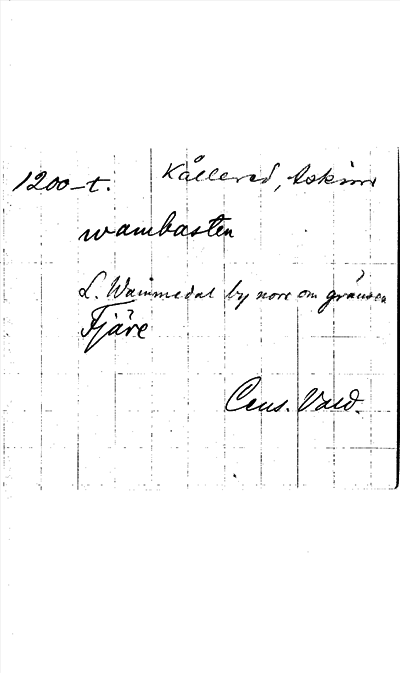 1200-t. Kållered, Askim
wambasten
L. Wammedal by norr om gränsen
Fjäre
Cens. Vald.